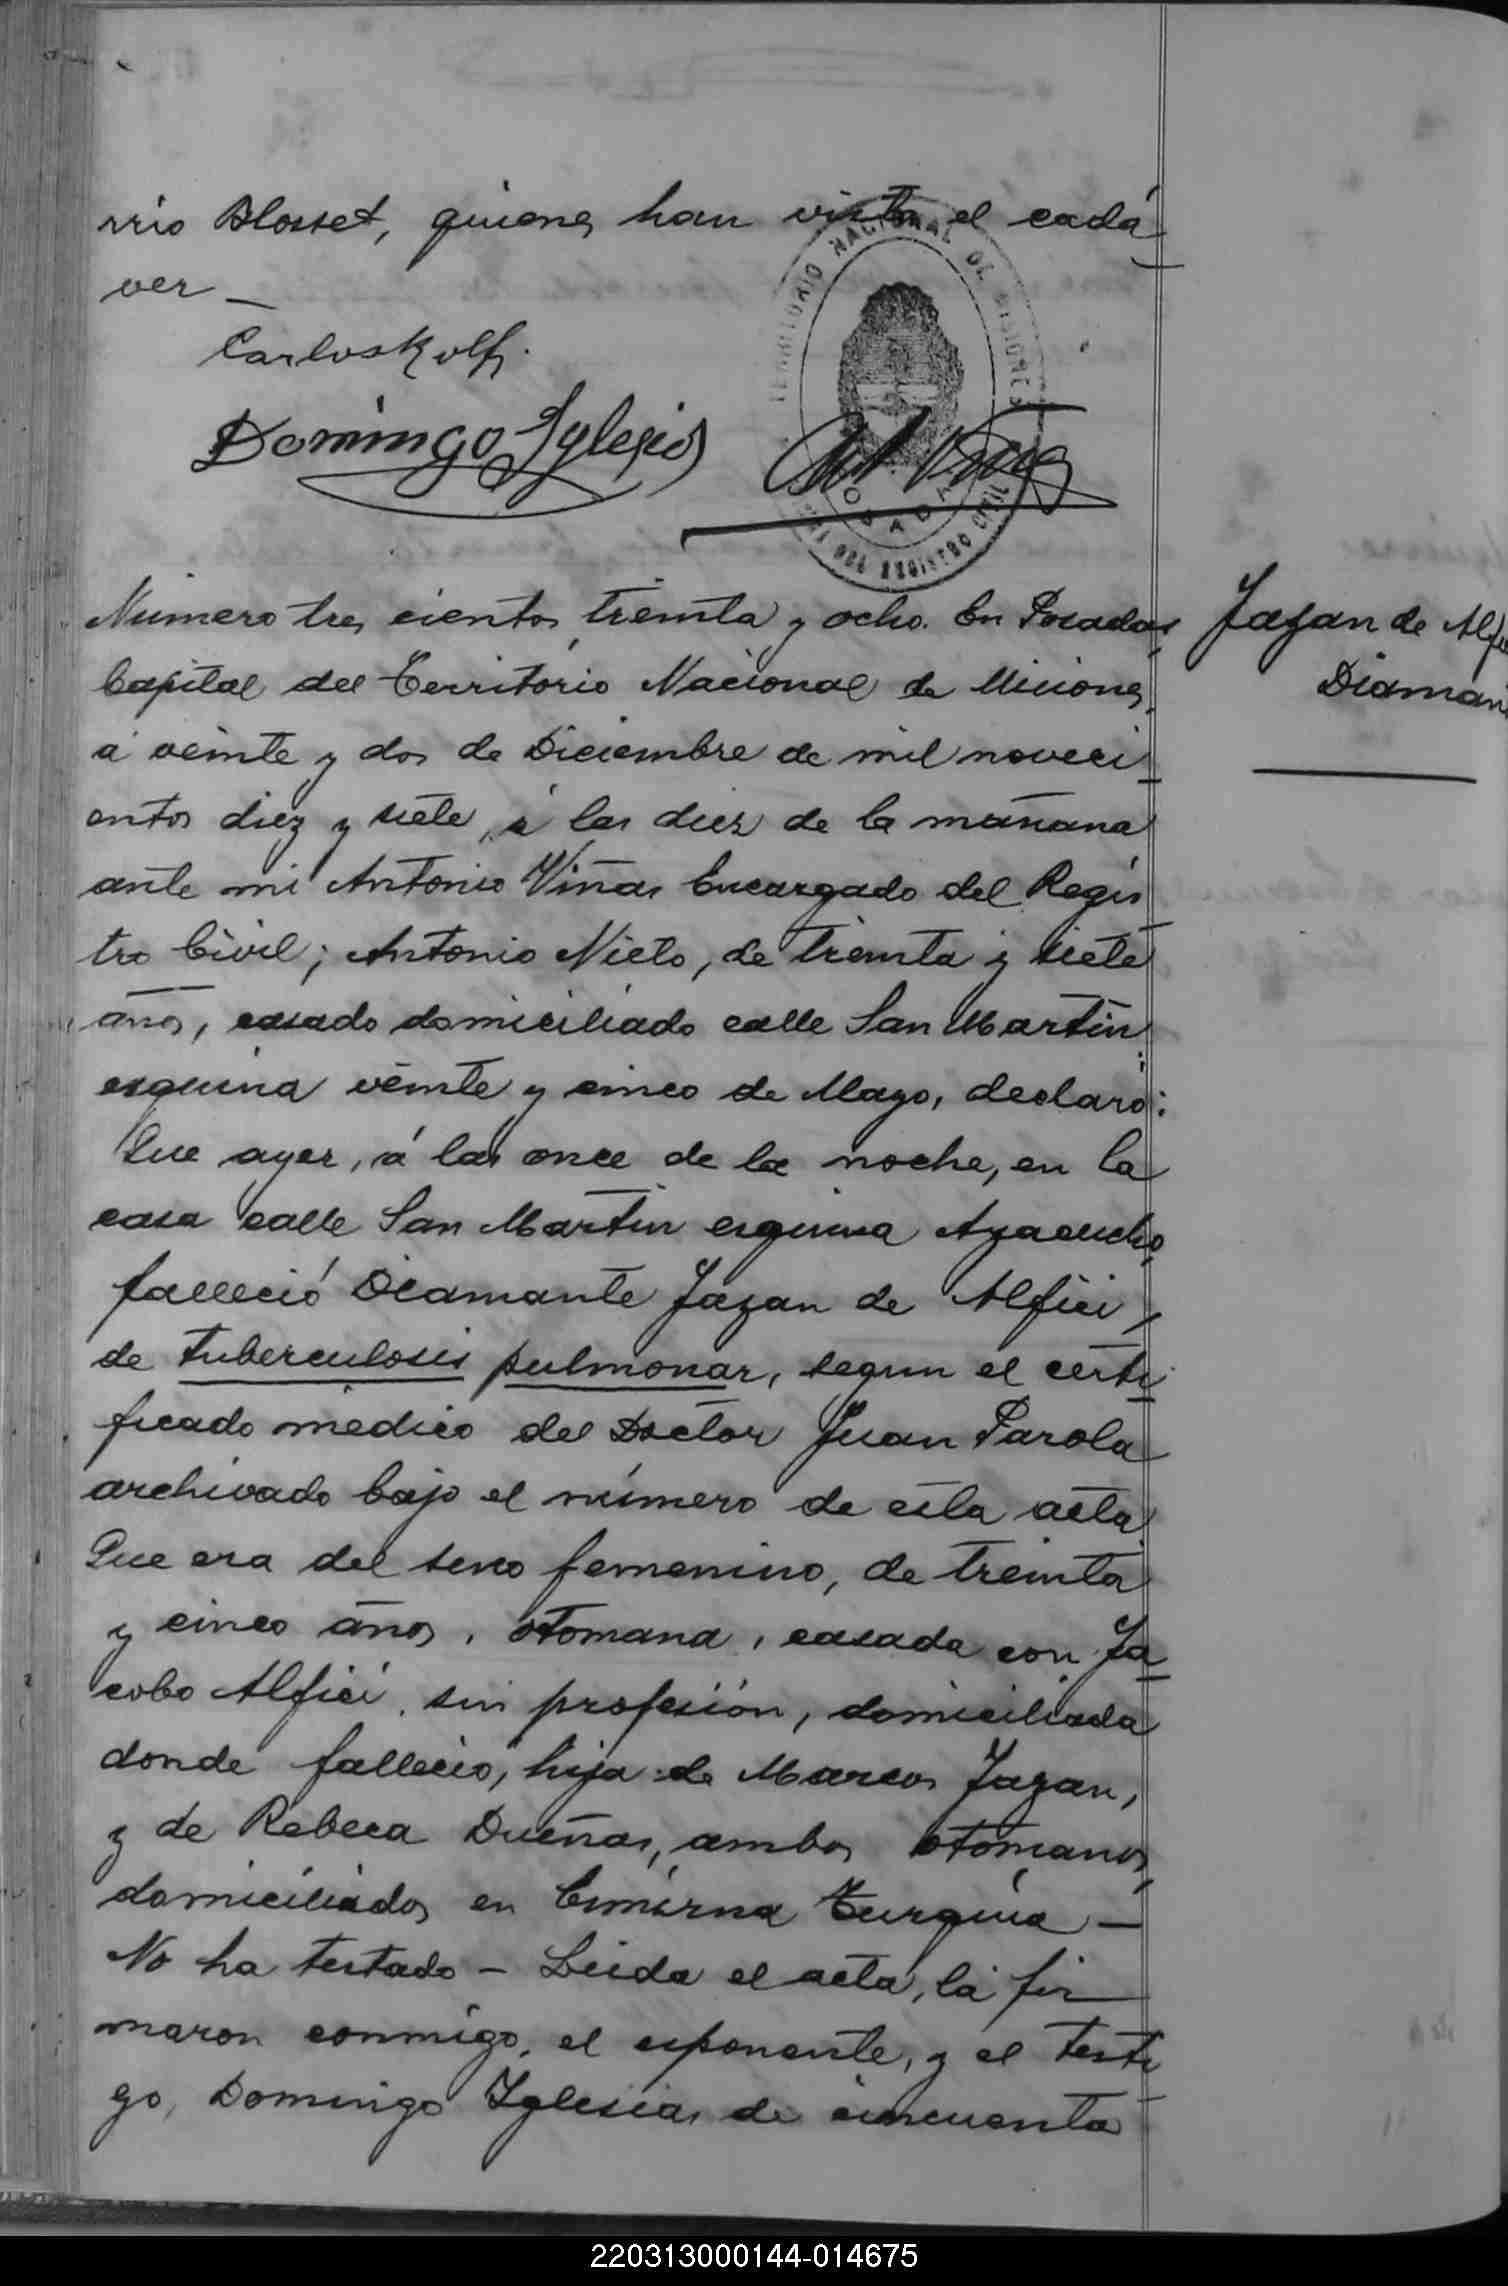 rrio Blosset, quienes han visto el cadá
ver _
Carlos Kolf.
Domingo Yglesias
TERRITORIO NACIONAL DE MISIONES
POSADAS
DEL REGISTRO CIVIL
Número tres cientos treinta y ocho. En Posadas
Jazan de Alfi
Capital del Territorio Nacional de Misiones,
Diaman
á veinte y dos de Diciembre de mil noveci_
entos diez y siete, á las diez de la mañana
ante mi Antonio Viñas Encargado del Regis
tro Civil; Antonio Nieto, de treinta y siete
años, casado domiciliado calle San Martin
esquina veinte y cinco de Mayo, declaró:
Que ayer, á las once de la noche, en la
casa calle San Martin esquina Ayacucho,
falleció Diamante Jazan de Alfici,
de tuberculosis pulmonar, segun el certi_
ficado medico del Doctor Juan Parola
archivado bajo el número de esta acta
Que era del sexo femenino, de treinta
y cinco años, otomana, casada con Ja_
cobo Alfici, sin profesión, domiciliada
donde fallecio, hija de Marcos Jazan,
y de Rebeca Dueñas, ambos otomanos,
domiciliados en Esmirna Turquia —
No ha testado – Leida el acta, la fir_
maron conmigo, el esponente, y el testi_
go, Domingo Yglesias de cincuenta
220313000144-014675